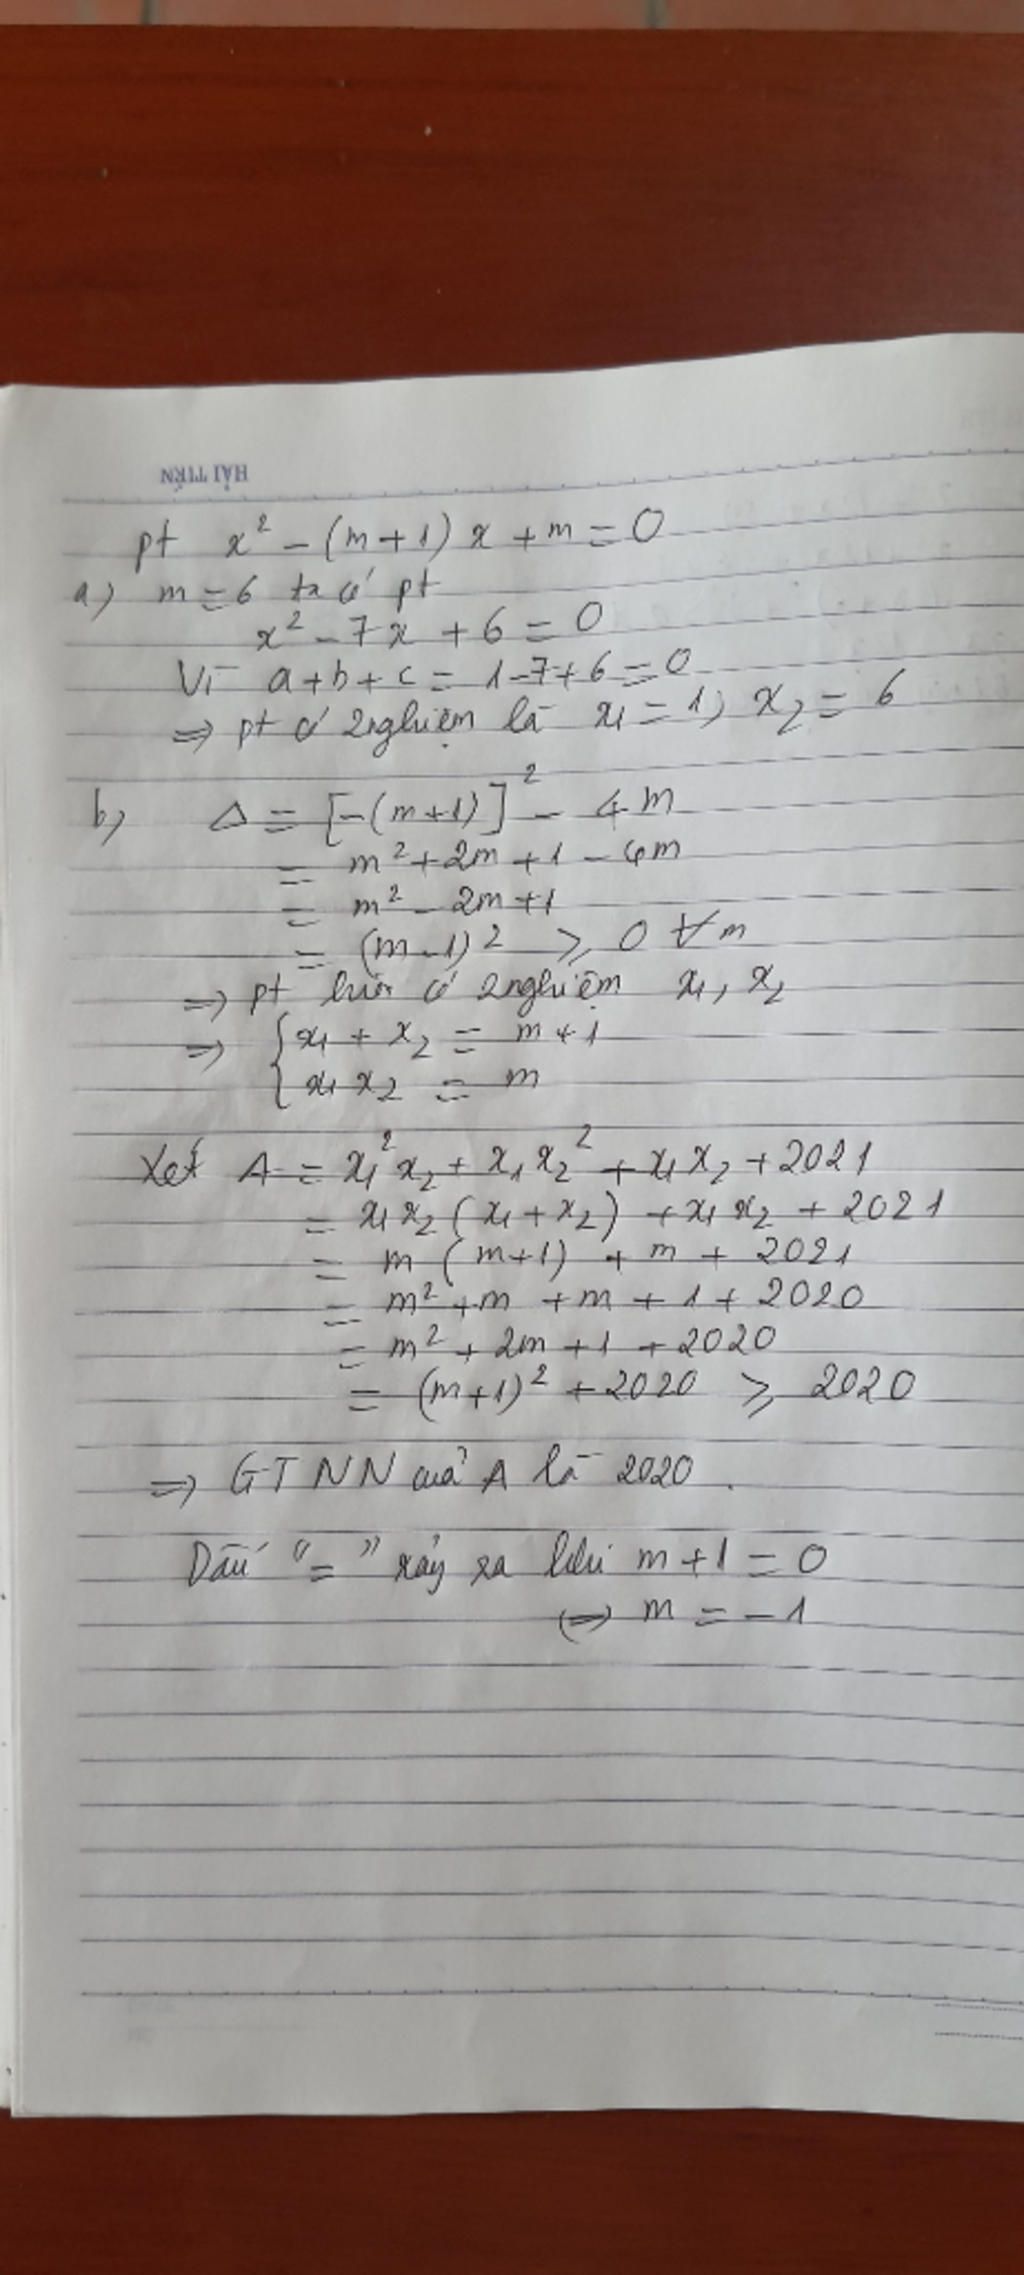 HẢI TIẾN
pt x² - (m+1)x + m = 0
a) m = 6 ta có pt
x² - 7x + 6 = 0
Vì a+b+c = 1-7+6 = 0
=> pt có 2 nghiệm là x₁ = 1; x₂ = 6
b) Δ = [-(m+1)]² - 4m
= m² + 2m + 1 - 4m
= m² - 2m + 1
= (m-1)² ⩾ 0 ∀m
=> pt luôn có 2 nghiệm x₁, x₂
=> { x₁ + x₂ = m + 1
x₁x₂ = m
Xét A = x₁²x₂ + x₁x₂² + x₁x₂ + 2021
= x₁x₂(x₁+x₂) + x₁x₂ + 2021
= m(m+1) + m + 2021
= m² + m + m + 1 + 2020
= m² + 2m + 1 + 2020
= (m+1)² + 2020 ⩾ 2020
=> GTNN của A là 2020.
Dấu "=" xảy ra khi m + 1 = 0
<=> m = -1